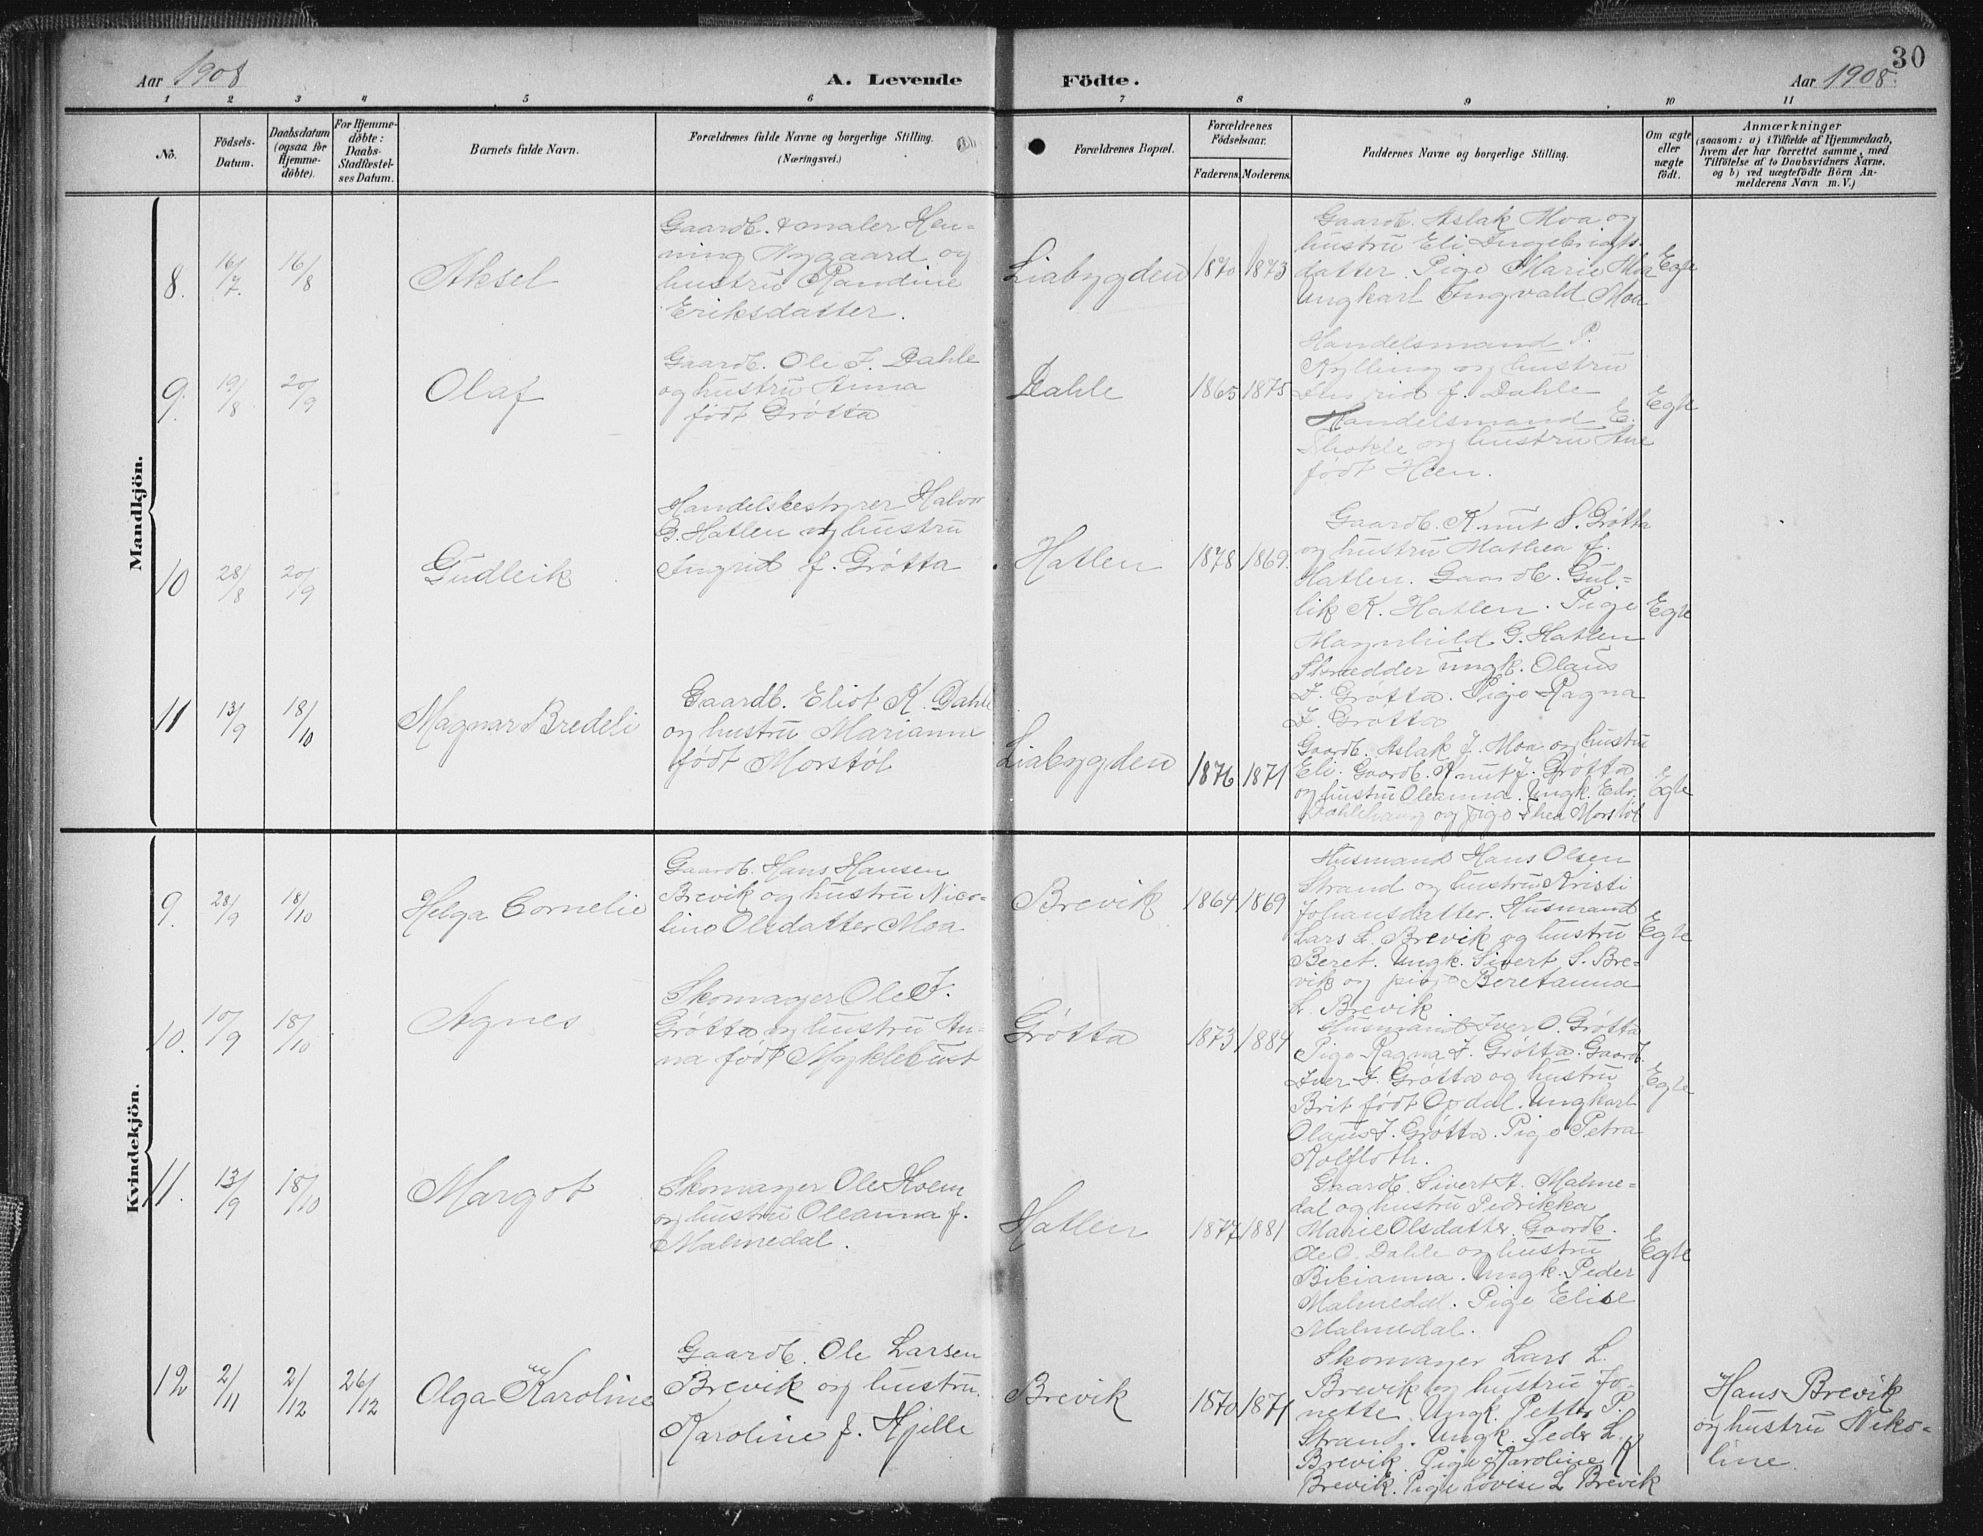 30
Aar 1908
A. Levende Födte.
Aar 1908
1 2 3 4 5 6 7 8 9 10 11
No.
Födsels-
Datum.
Daabsdatum
(ogsaa for
Hjemme-
döbte).
For Hjemme-
döbte:
Daabs-
Stadfæstel-
ses Datum.
Barnets fulde Navn.
Forældrenes fulde Navne og borgerlige Stilling.
(Næringsvei.)
Forældrenes Bopæl.
Forældrenes
Födselsaar.
Faderens. Moderens.
Faddernes Navne og borgerlige Stilling.
Om ægte
eller
uægte
födt.
Anmærkninger
(saasom: a) i Tilfælde af Hjemmedaab,
hvem der har forrettet samme, med
Tilföielse af to Daabsvidners Navne,
og b) ved uægtefödte Börn An-
melderens Navn m. V.)
Mandkjön.
8.
16/7
16/8
Aksel
Gaardb. & maler Hen-
ning Nygaard og
hustru Randine
Eriksdatter.
Liabygden
1870
1873
Gaardb. Aslak Moa og
hustru Eli Ingebrigts-
datter. Pige Marie Moa
Ungkarl Ingvald Moa
Egte
9.
19/8
20/9
Olaf
Gaardb. Ole J. Dahle
og hustru Anna
født Grøtta
Dahle
1865
1875
Handelsmand P.
Kylling og hustru
Ingrid f. Dahle
Handelsmand E.
og hustru Ane
født Heen.
Egte
10
28/8
20/9
Gudleik
Handelsbestyrer Halvor
G. Hatlen og hustru
Ingrid f. Grøtta
Hatlen
1878
1869.
Gaardb. Knut S. Grøtta
og hustru Mathea f.
Hatlen. Gaardb. Gul-
lik K. Hatlen. Pige
Magnhild G. Hatlen
Skrædder ungk. Olaus
J. Grøtta. Pige Ragna
J. Grøtta
Egte
11
13/9
18/10
Magnar Bredeli
Gaardb. Eliot K. Dahle
og hustru Marianne
født Morstøl
Liabygden
1876
1871
Gaardb. Aslak J. Moa og hustru
Eli. Gaardb. Knut J. Grøtta
og hustru Oleanna. Ungk. Edv.
Dahlehaug og pige Thea Morstøl
Egte
Kvindekjön.
9.
28/9
18/10
Helga Cornelie
Gaardb. Hans Hansen
Brevik og hustru Nico-
line Olsdatter Moa.
Brevik
1864
1869
Husmand Hans Olsen
Strand og hustru Kristi
Johansdatter. Husmand
Lars L. Brevik og hustru
Beret. Ungk. Sivert S. Bre-
vik og pige Beretanna
L. Brevik
Egte
10.
10/9
18/10
Agnes
Skomager Ole J.
Grøtta og hustru An-
na født Myklebust
Grøtta
1873
1884
Husmand Iver O. Grøtta
Pige Ragna J. Grøtta. Gaardb.
Iver J. Grøtta og hustru
Brit født Opdal. Ungkarl
Olaus J. Grøtta. Pige Petra
Rolfloth.
Egte
11.
13/9
18/10
Margot
Skomager Ole Hoem
og hustru Oleanna f.
Malmedal.
Hatlen
1877
1881
Gaardb. Sivert A. Malme-
dal og hustru Pedrikka
Marie Olsdatter. Gaardb.
Ole O. Dahle og hustru
Ungk. Peder
Malmedal. Pige Elise
Malmedal.
Egte
12
2/11
2/12
26/12
Olga Karoline
Gaardb. Ole Larsen
Brevik og hustru
Karoline f. Hjelle
Brevik
1870
1871
Skomager Lars L.
Brevik og hustru Jo-
nette. Ungk. Petter P.
Strand. Ungk. Peder L.
Brevik. Pige Karoline K
Brevik. Pige Lovise L Brevik
Hans Brevik
og hustru Niko-
line.